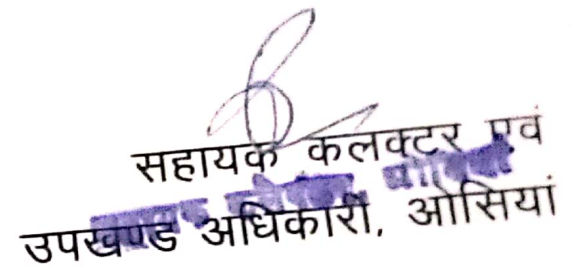 सहायक कलक्टर एवं
उपखण्ड अधिकारी, ओसियां